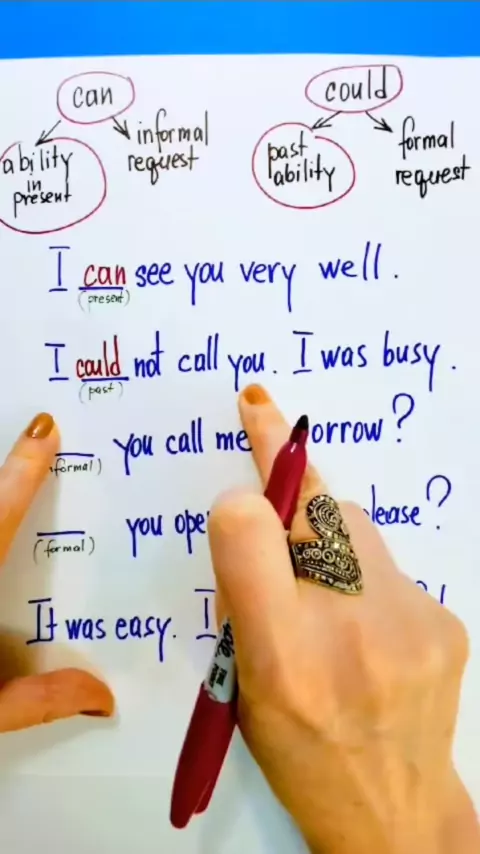 can
could
ability
in
present
informal
request
past
ability
formal
request
I can see you very well.
(present)
I could not call you. I was busy.
(past)
you call me ?
formal)
you please?
(formal)
It was easy. I